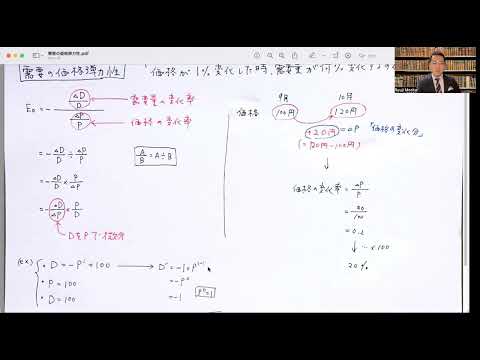 需要の価格弾力性.pdf
需要の価格弾力性
価格が1%変化した時、需要量が何%変化するのか
ED = - ΔD/D / ΔP/P
需要量の変化率
価格の変化率
= - ΔD/D ÷ ΔP/P
A/B = A÷B
= - ΔD/D × P/ΔP
= - ΔD/ΔP × P/D
DをPで微分
(ex)
・D = -P + 100 → D' = -1×P¹⁻¹
・P = 100
= -P⁰
・D = 100
= -1
P⁰=1
9月 10月
価格 100円 120円
+20円 = ΔP 「価格の変化分」
(= 120円-100円)
価格の変化率 = ΔP/P
= 20/100
= 0.2
↓ … ×100
20%